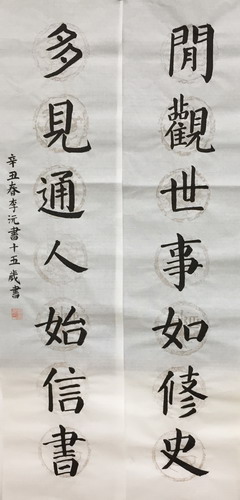 閒觀世事如修史
多見通人始信書
辛丑春李沅書十五歲書